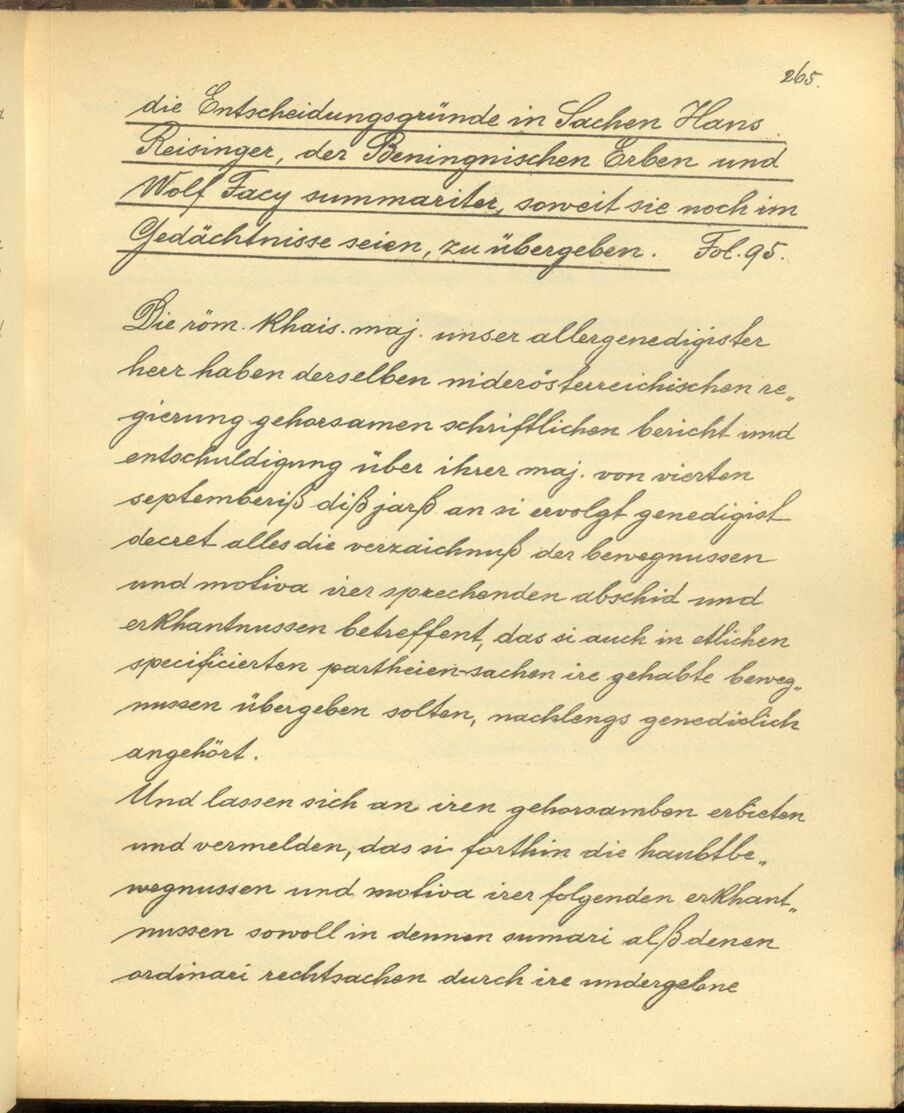 265.
die Entscheidungsgründe in Sachen Hans
Reisinger, der Beningnischen Erben und
Wolf Facy summariter, soweit sie noch im
Gedächtnisse seien, zu übergeben. Fol. 95.
Die röm. khais. maj. unser allergenedigister
herr haben derselben niderösterreichischen re„
gierung gehorsamen schriftlichen bericht und
entschuldigung über ihrer maj. von vierten
septemberiß diß jarß an si ervolgt genedigist
decret alles die verzaichnuß der bewegnussen
und motiva irer sprechenden abschid und
erkhantnussen betreffent, das si auch in etlichen
specificierten partheien-sachen ire gehabte beweg„
nussen übergeben solten, nachlengs genediclich
angehört.
Und lassen sich an iren gehorsamben erbieten
und vermelden, das si forthin die haubtbe„
wegnussen und motiva irer folgenden erkhant„
nussen sowoll in dennen sumari alß denen
ordinari rechtsachen durch ire undergebne